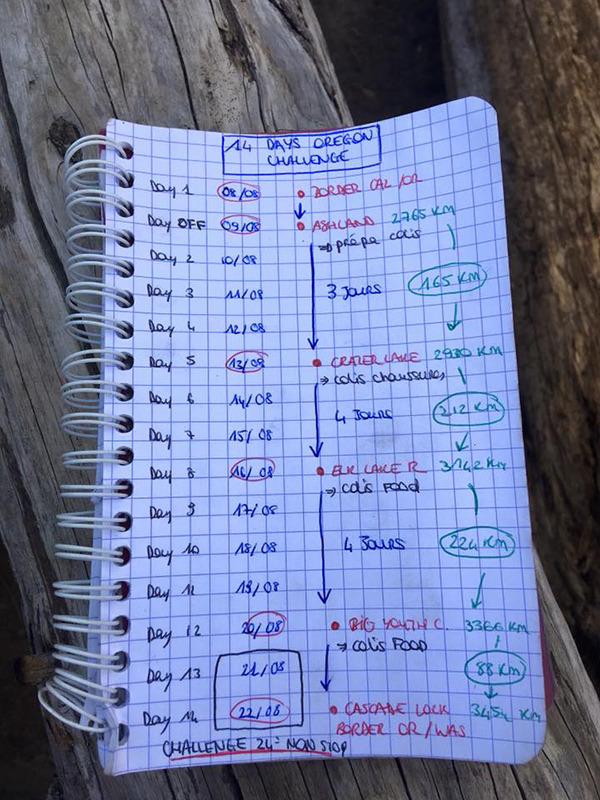 14 DAYS OREGON
CHALLENGE
Day 1 08/08 BORDER CAL/OR
Day OFF 09/08 ASHLAND 2765 KM
⇒ prépa colis
Day 2 10/08
Day 3 11/08 3 Jours 165 KM
Day 4 12/08
Day 5 13/08 CRATER LAKE 2930 KM
⇒ colis chaussures
Day 6 14/08 4 Jours 212 KM
Day 7 15/08
Day 8 16/08 ELK LAKE R 3142 KM
⇒ colis FOOD
Day 9 17/08
Day 10 18/08 4 Jours 224 KM
Day 11 19/08
Day 12 20/08 BIG YOUTH C. 3366 KM
⇒ colis FOOD
Day 13 21/08 88 KM
Day 14 22/08 CASCADE LOCK 3454 KM
BORDER OR/WAS
CHALLENGE 24H NON STOP